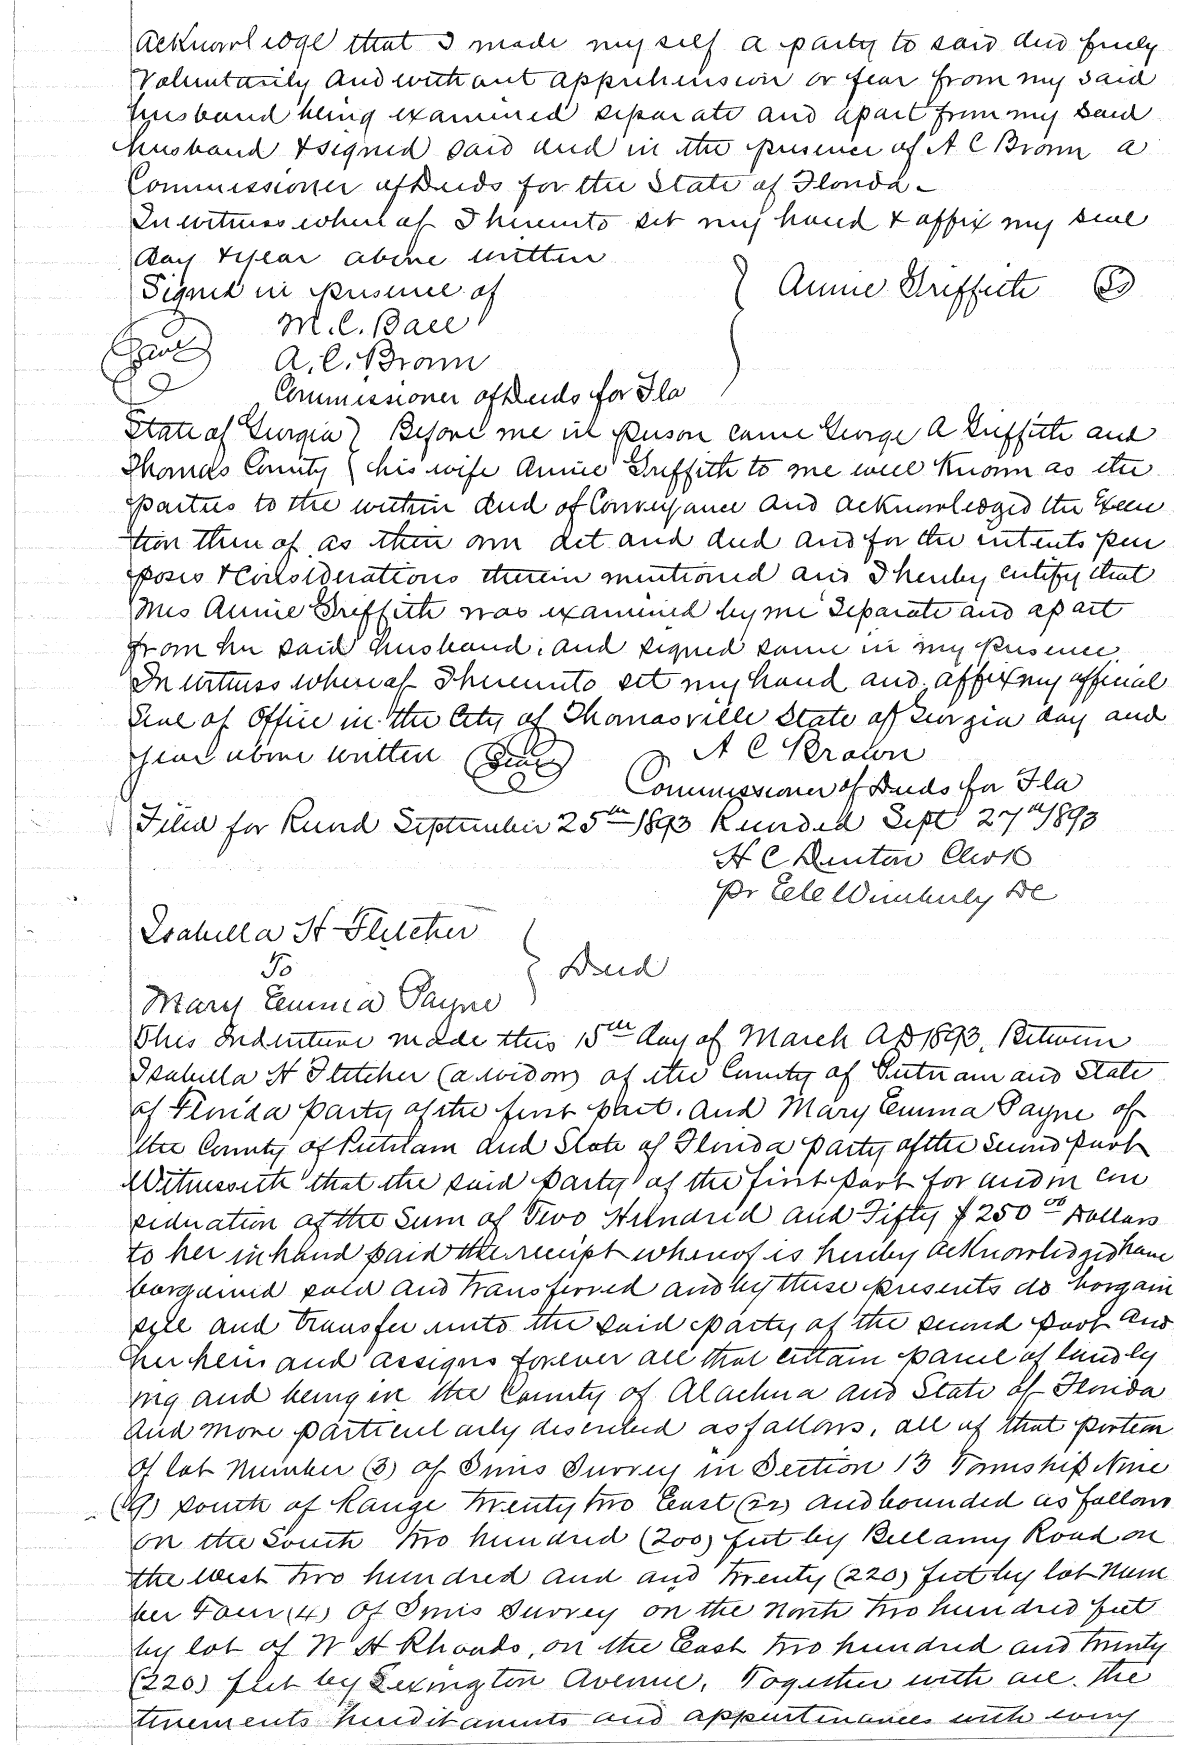 acknowledge that I made myself a party to said deed freely
Voluntarily and without apprehension or fear from my said
husband being examined separate and apart from my said
husband & signed said deed in the presence of A C Brown a
Commissioner of Deeds for the State of Florida -
In witness whereof I hereunto set my hand & affix my seal
day & year above written
Signed in presence of } Annie Griffith
M. C. Ball
Seal A. C. Brown
Commissioner of Deeds for Fla
State of Georgia } Before me in person came George A Griffith and
Thomas County } his wife Annie Griffith to me well Known as the
parties to the within deed of Conveyance and acknowledged the Execu
tion thereof as their own act and deed and for the intents pur
poses & Considerations therein mentioned and I hereby certify that
Mrs Annie Griffith was examined by me Separate and apart
from her said husband, and signed same in my presence.
In witness whereof I hereunto set my hand and affix my official
Seal of Office in the City of Thomasville State of Georgia day and
year above written Seal A C Brown
Commissioner of Deeds for Fla
Filed for Record September 25th 1893 Recorded Sept 27th 1893
H C Denton Clerk
pr Wimberly DC
Isabella H Fletcher
To } Deed
Mary Emma Payne
This Indenture made this 15th day of March AD 1893, Between
Isabella H Fletcher (a widow) of the County of Putnam and State
of Florida party of the first part. and Mary Emma Payne of
the County of Putnam and State of Florida party of the second part
Witnesseth that the said party of the first part for and in con
sideration of the Sum of Two Hundred and Fifty $250 00 Dollars
to her in hand paid the receipt whereof is hereby acknowledged have
bargained sold and transferred and by these presents do bargain
sell and transfer unto the said party of the second part and
her heirs and assigns forever all that certain parcel of land ly
ing and being in the County of Alachua and State of Florida
and more particularly described as follows, all of that portion
of lot Number (3) of Sims Survey in Section 13 Township Nine
(9) south of Range twenty two East (22) and bounded as follows
on the South two hundred (200) feet by Bellamy Road on
the West two hundred and and twenty (220) feet by lot Num
ber Four (4) of Sims Survey on the North two hundred feet
by lot of W H Rhoads, on the East two hundred and twenty
(220) feet by Lexington Avenue, Together with all the
tenements hereditaments and appurtenances with every